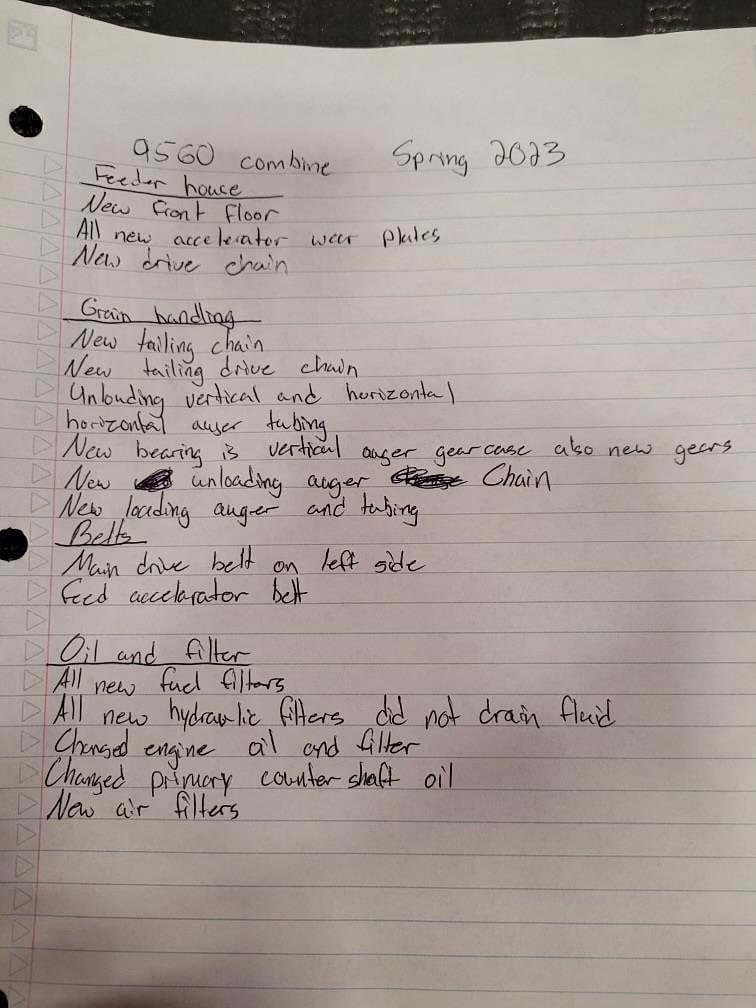 9560 combine Spring 2023
Feeder house
New front floor
All new accelerator wear plates
New drive chain
Grain handling
New tailing chain
New tailing drive chain
Unloading vertical and horizontal
horizontal auger tubing
New bearing is vertical auger gearcase also new gears
New unloading auger Chain
New loading auger and tubing
Belts
Main drive belt on left side
feed accelarator belt
Oil and filter
All new fuel filters
All new hydraulic filters did not drain fluid
Changed engine oil and filter
Changed primary counter shaft oil
New air filters